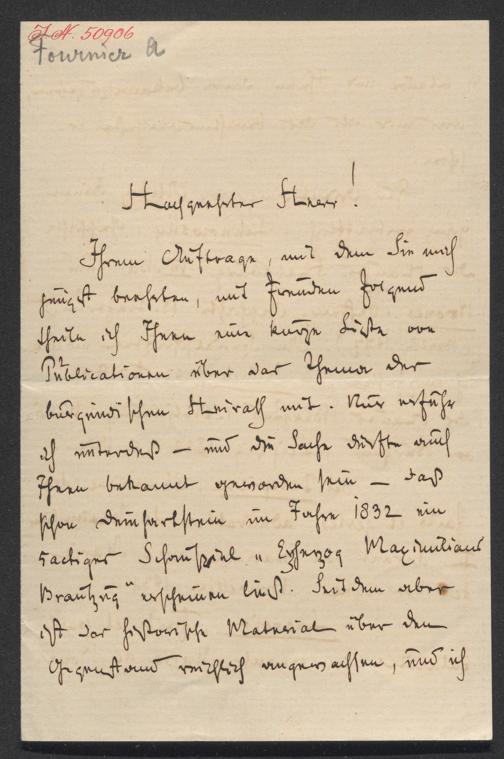 I. N. 50906
Fournier A
Hochgeehrter Herr!
Ihrem Auftrage, mit dem Sie mich
jüngst beehrten, mit Freuden folgend
theile ich Ihnen eine kurze Liste von
Publicationen über das Thema der
burgundischen Heirath mit. Nur erfuhr
ich unterdeß – und die Sache dürfte auch
Ihnen bekannt geworden sein – daß
schon Deinhardstein im Jahre 1832 ein
5actiges Schauspiel „Erzherzog Maximilians
Brautzug" erscheinen ließ. Seitdem aber
ist das historische Material über den
Gegenstand reichlich angewachsen, und ich